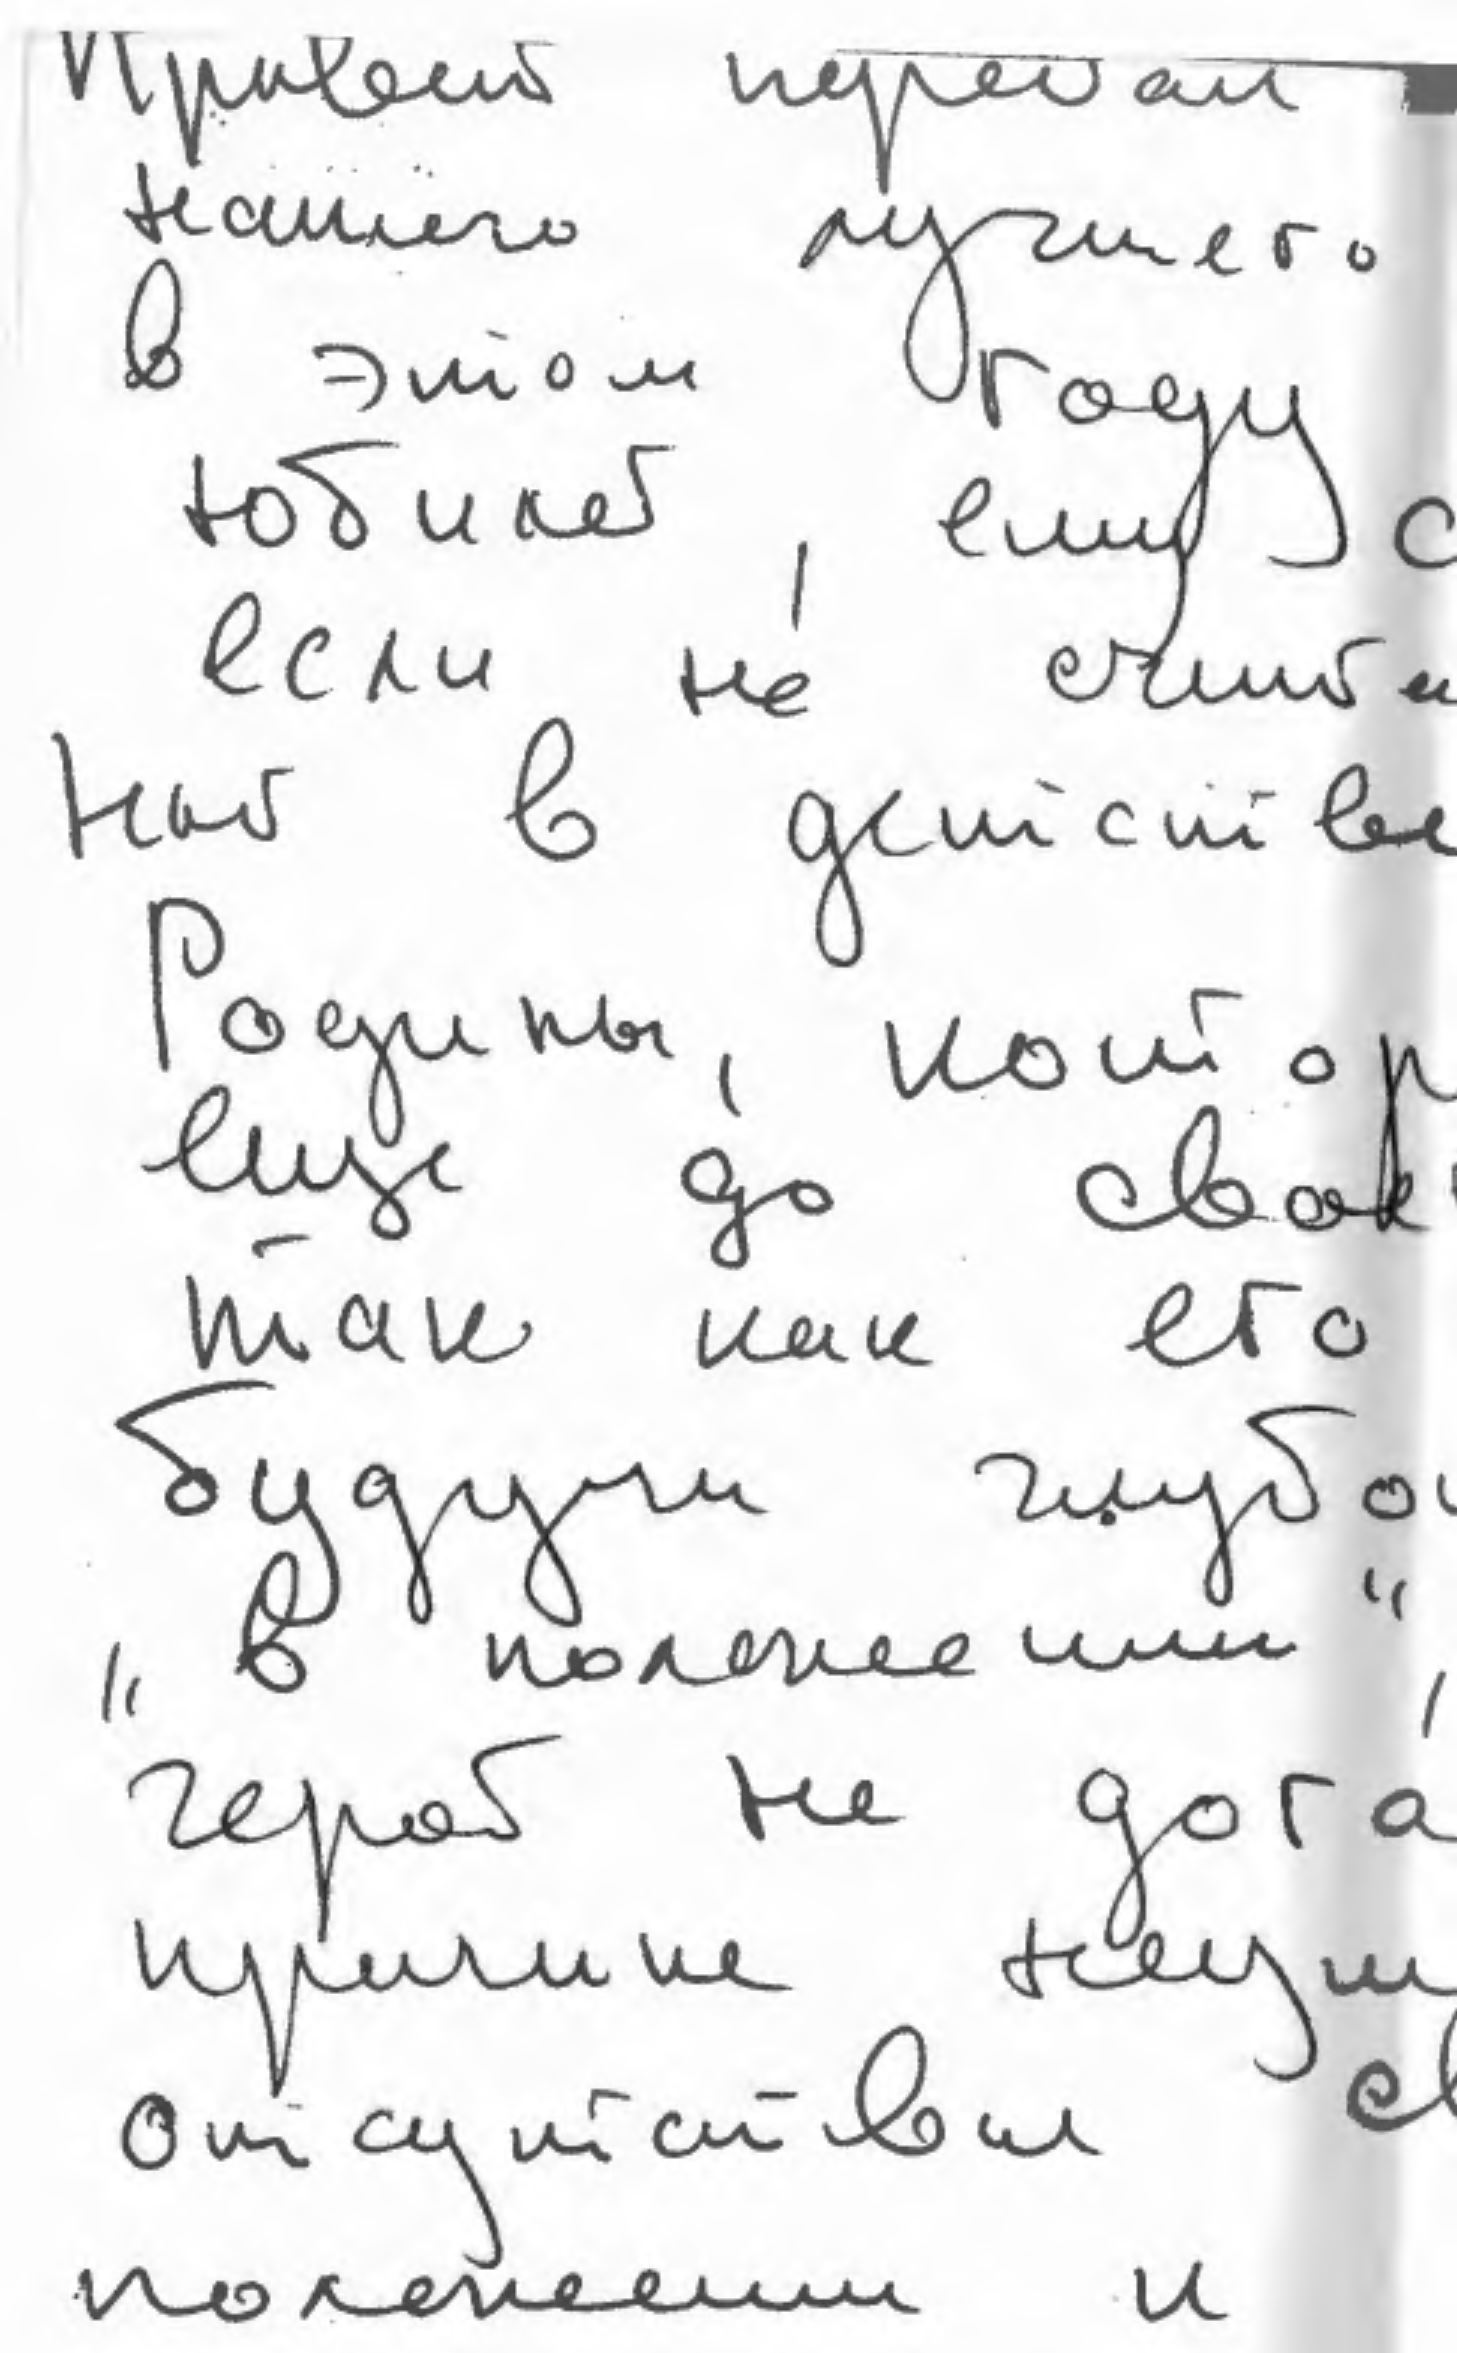 Привет передал
нашего лучшего
в этом году
юбилей, ему с
если не счита
ной в детстве
Родины, котор
еще до свое
так как его
будучи глубо
„в положении“,
герой не дога
причине неум
отсутствии св
положении и